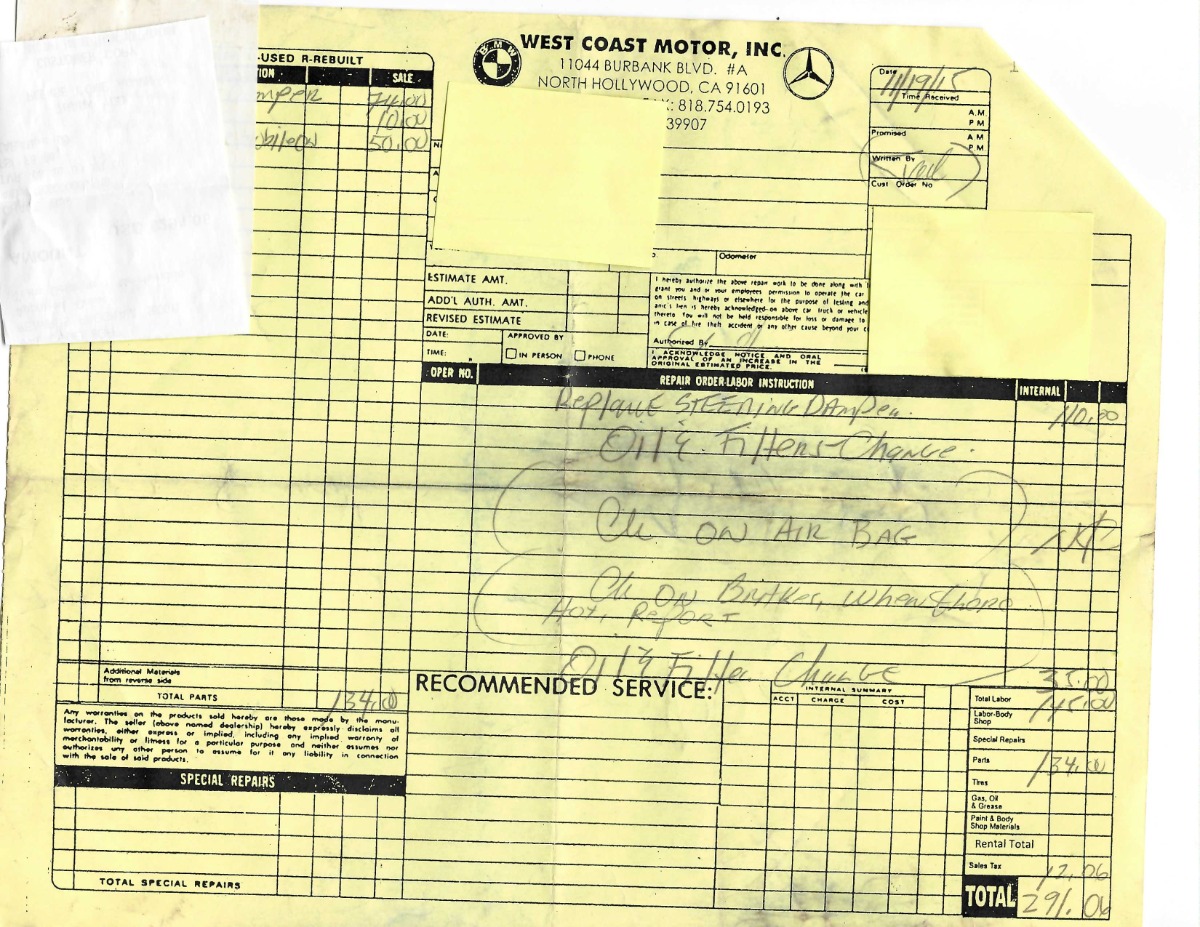 WEST COAST MOTOR, INC.
BMW
11044 BURBANK BLVD. #A
NORTH HOLLYWOOD, CA 91601
: 818.754.0193
39907
-USED R-REBUILT
ION SALE
mper 74.00
10.00
50.00
Date 11/19/15
Time Received
A.M
P M
Promised A M
P M
Written By
Cust Order No
Odometer
ESTIMATE AMT.
ADD'L AUTH. AMT.
REVISED ESTIMATE
DATE: APPROVED BY
TIME: IN PERSON PHONE
I hereby authorize the above repair work to be done along with
grant you and or your employees permission to operate the car
on streets highways or elsewhere for the purpose of testing and
anic's lien is hereby acknowledged on above car truck or vehicle
thereto You will not be held responsible for loss or damage to
in case of fire theft accident or any other cause beyond your c
Authorized By
I ACKNOWLEDGE NOTICE AND ORAL
APPROVAL OF AN INCREASE IN THE
ORIGINAL ESTIMATED PRICE.
OPER NO. REPAIR ORDER-LABOR INSTRUCTION INTERNAL
Replace STEERING DAmper. 110.00
Oil & Filters Change.
Ck ON AIR BAG N/C
Ck ON Brakes, when there
Hot, Report
Oil & Filter Change 35.00
Additional Materials
from reverse side
TOTAL PARTS 134.00
Any warranties on the products sold hereby are those made by the manu-
facturer. The seller (above named dealership) hereby expressly disclaims all
warranties, either express or implied, including any implied warranty of
merchantability or fitness for a particular purpose and neither assumes nor
authorizes any other person to assume for it any liability in connection
with the sale of said products.
SPECIAL REPAIRS
TOTAL SPECIAL REPAIRS
RECOMMENDED SERVICE:
INTERNAL SUMMARY
ACCT CHARGE COST
Total Labor 145.00
Labor-Body
Shop
Special Repairs
Parts 134.00
Tires
Gas, Oil
& Grease
Paint & Body
Shop Materials
Rental Total
Sales Tax 12.06
TOTAL 291.06